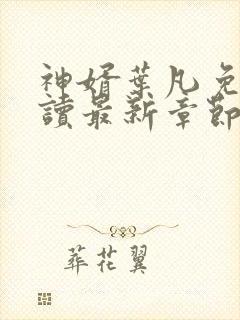 神婿葉凡免
讀最新章節
葬花翼